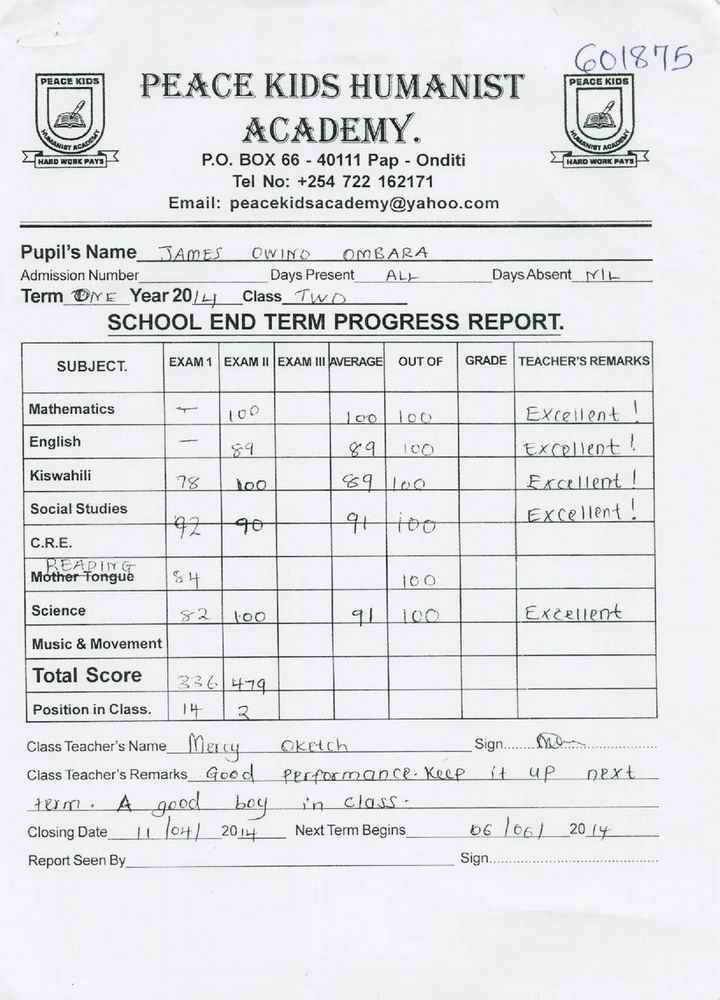 601875
PEACE KIDS
HUMANIST ACADEMY
HARD WORK PAYS
PEACE KIDS HUMANIST
ACADEMY.
PEACE KIDS
HUMANIST ACADEMY
HARD WORK PAYS
P.O. BOX 66 - 40111 Pap - Onditi
Tel No: +254 722 162171
Email: peacekidsacademy@yahoo.com
Pupil's Name JAMES OWINO OMBARA
Admission Number Days Present ALL Days Absent NIL
Term ONE Year 2014 Class TWO
SCHOOL END TERM PROGRESS REPORT.
SUBJECT. EXAM 1 EXAM II EXAM III AVERAGE OUT OF GRADE TEACHER'S REMARKS
Mathematics — 100 100 100 Excellent !
English — 89 89 100 Excellent !
Kiswahili 78 100 89 100 Excellent !
Social Studies 92 90 91 100 Excellent !
C.R.E.
READING
Mother Tongue 84 100
Science 82 100 91 100 Excellent
Music & Movement
Total Score 336 479
Position in Class. 14 2
Class Teacher's Name Mercy Oketch Sign......
Class Teacher's Remarks Good performance. Keep it up next
term. A good boy in class.
Closing Date 11/04/ 2014 Next Term Begins 06/06/ 2014
Report Seen By Sign......